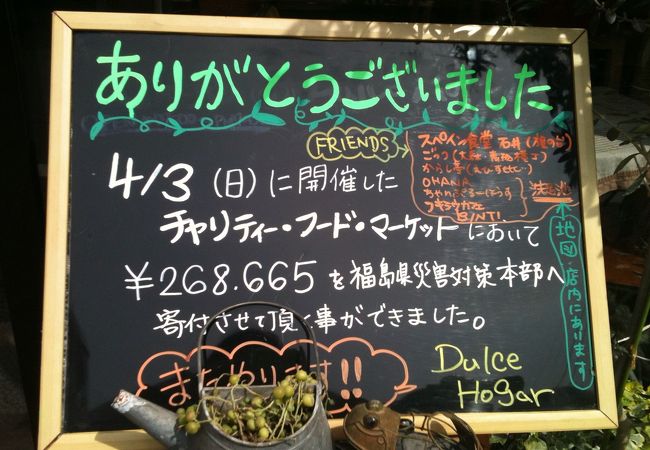 ありがとうございました
FRIENDS
スペイン食堂 石井
OHANA
BINTI
4/3(日)に開催した
チャリティー・フード・マーケットにおいて
¥268.665を福島県災害対策本部へ
寄付させて頂く事ができました。
地図は店内にあります
またやります!!
Dulce
Hogar